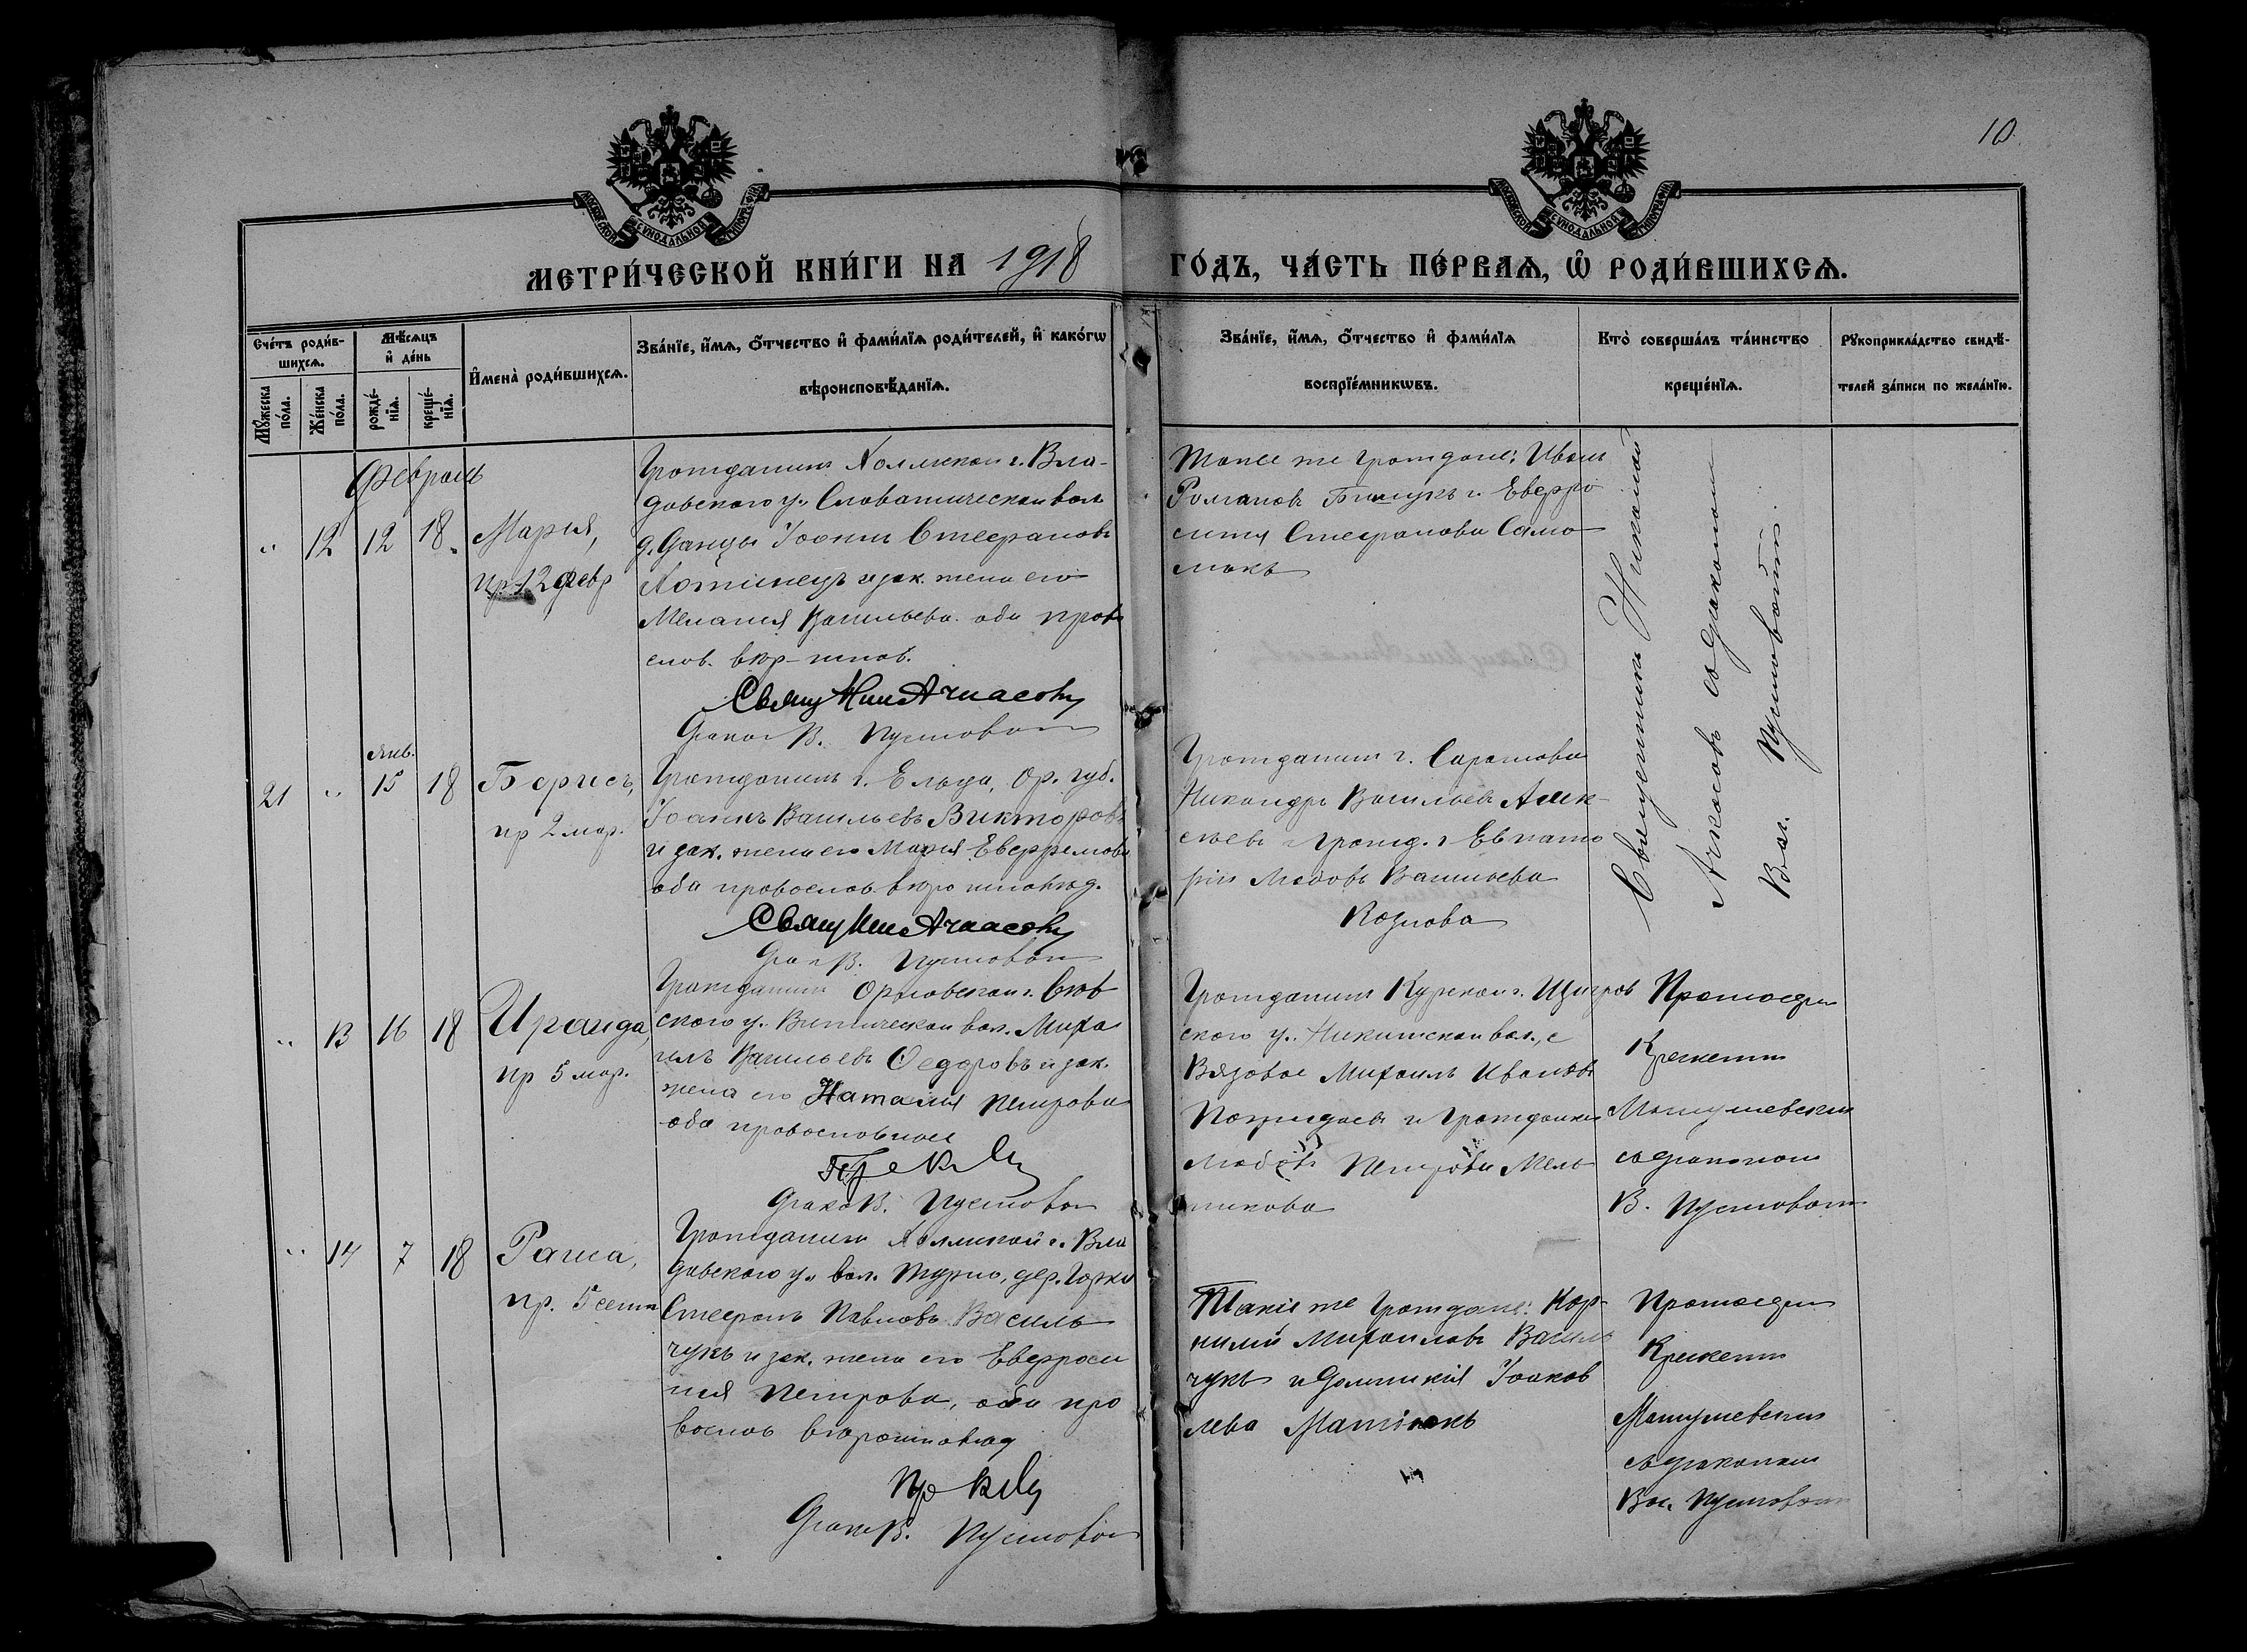 10.
МОСКОВСКОЙ СѴНОДАЛЬНОЙ ТИПОГРАФІИ
МОСКОВСКОЙ СѴНОДАЛЬНОЙ ТИПОГРАФІИ
МЕТРИ́ЧЕСКОЙ КНИ́ГИ НА 1918 ГО́ДЪ, ЧА́СТЬ ПЕ́РВАѦ, Ѽ РОДИ́ВШИХСѦ.
Сче́тъ роди́в-
шихсѧ.
Мꙋ́жеска по́ла.
Же́нска по́ла.
Мѣ́сѧцъ
и҆ де́нь
рожде́-
нїѧ.
креще́-
нїѧ.
И҆мена̀ роди́вшихсѧ.
Зва́нїе, и҆́мѧ, ѻ҆́тчество и҆ фами́лїѧ роди́телей, и҆ како́гѡ
вѣроисповѣ́данїѧ.
Зва́нїе, и҆́мѧ, ѻ҆́тчество и҆ фами́лїѧ
воспрїе́мникѡвъ.
Кто̀ соверша́лъ та́инство
креще́нїѧ.
Рꙋкоприкла́дство свидѣ́-
телей за́писи по жела́нїю.
Февраль
" 12 12 18.
Марія,
пр. 12 февр
Гражданинъ Холмской г. Вла-
давского у. Словатической вол
д. Данцы Іоаннъ Стефановъ
и зак. жена его
Меланія Васильева. оба право
слов. вѣр-
Свящ Ник Ачкасовъ
Діакон В. Пустовой
Такіе же граждане: Иванъ
Романовъ и Евфро
синія Стефанова Само
Священникъ Николай
Ачкасовъ съ діакономъ
Вас. Пустовойтъ.
21 " янв. 15 18
Борисъ,
пр 2 мар.
Гражданинъ г. Ельца, Ор. губ.
Іоаннъ Васильевъ Викторовъ
и зак. жена его Марія Евфремова
оба православ.
Свящ Ник Ачкасовъ
Діак В. Пустовой
Гражданинъ г. Саратова
Никандръ Васильевъ Алек-
сѣевъ и гражд. г Евпато
ріи Любовь Васильева
Козлова
" 13 16 18
Ираида,
пр 5 мар.
Гражданинъ Орловской г. Сѣв
ского у. вол. Миха
илъ Васильевъ Ѳедоровъ и зак.
жена его Наталія Петрова
оба православные
Діакон В. Пустовой
Гражданинъ Курской г. Щигров
ского у. Никитской вол., с
Вязовое Михаилъ Ивановъ
и гражданка
Любовь Петрова Мель
никова
Протоіерей
Матушевскій
съ діакономъ
В. Пустовойт
" 14 7 18
Раиса,
пр. 5 сент
Гражданинъ Холмской г. Вла
давского у. вол. Турно, дер. Горки
Стефанъ Павловъ Василь
чукъ и зак. жена его Евфроси
нія Петрова, оба пра
вослов
Діакон В. Пустовой
Такіе же граждане: Кор-
нилій Михаиловъ Василь
чукъ и Домникія Іоаков
лева
Протоіерей
Матушевскій
съ діакономъ
Вас. Пустовойт